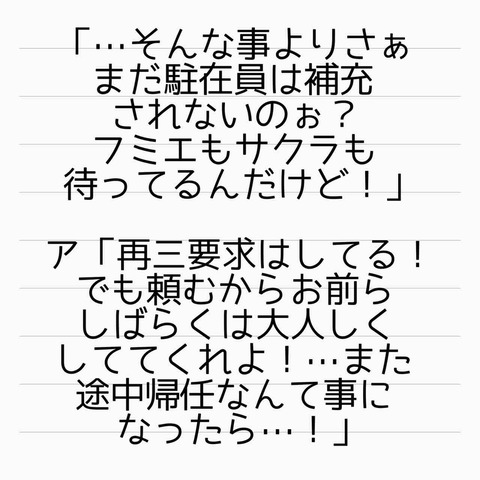 「…そんな事よりさぁ
まだ駐在員は補充
されないのぉ？
フミエもサクラも
待ってるんだけど！」
ア「再三要求はしてる！
でも頼むからお前ら
しばらくは大人しく
しててくれよ！…また
途中帰任なんて事に
なったら…！」